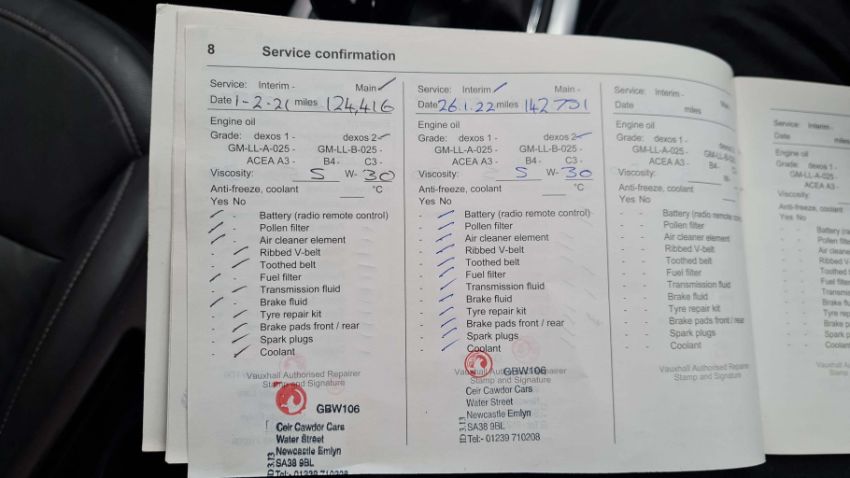 8 Service confirmation
Service: Interim - Main ✓
Date 1-2-21 miles 124,416
Engine oil
Grade: dexos 1 - dexos 2 ✓
GM-LL-A-025 - GM-LL-B-025 -
ACEA A3 - B4 - C3 -
Viscosity: 5 W- 30
Anti-freeze, coolant °C
Yes No
Battery (radio remote control)
Pollen filter
Air cleaner element
Ribbed V-belt
Toothed belt
Fuel filter
Transmission fluid
Brake fluid
Tyre repair kit
Brake pads front / rear
Spark plugs
Coolant
Vauxhall Authorised Repairer
Stamp and Signature
GBW106
Ceir Cawdor Cars
Water Street
Newcastle Emlyn
SA38 9BL
Tel:- 01239 710208
ID 3.13
Service: Interim ✓ Main -
Date 26.1.22 miles 142701
Engine oil
Grade: dexos 1 - dexos 2 ✓
GM-LL-A-025 - GM-LL-B-025 -
ACEA A3 - B4 - C3 -
Viscosity: 5 W- 30
Anti-freeze, coolant °C
Yes No
Battery (radio remote control)
Pollen filter
Air cleaner element
Ribbed V-belt
Toothed belt
Fuel filter
Transmission fluid
Brake fluid
Tyre repair kit
Brake pads front / rear
Spark plugs
Coolant
Vauxhall Authorised Repairer
Stamp and Signature
GBW106
Ceir Cawdor Cars
Water Street
Newcastle Emlyn
SA38 9BL
Tel:- 01239 710208
ID 3.13
Service: Interim - Main -
Date miles
Engine oil
Grade: dexos 1 - dexos
GM-LL-A-025 - GM-LL-B-025
ACEA A3 - B4 -
Viscosity: W-
Anti-freeze, coolant °C
Yes No
Battery (radio remote con
Pollen filter
Air cleaner element
Ribbed V-belt
Toothed belt
Fuel filter
Transmission fluid
Brake fluid
Tyre repair kit
Brake pads front / rear
Spark plugs
Coolant
Vauxhall Authorised Repaire
Stamp and Signature
Service: Interim -
Date
Engine oil
Grade: dexos 1 -
GM-LL-A-025 -
ACEA A3 -
Viscosity:
Anti-freeze, coolant
Yes No
Battery (ra
Pollen filte
Air cleane
Ribbed V
Toothed
Fuel filte
Transmi
Brake fl
Tyre rep
Brake p
Spark p
Coolan